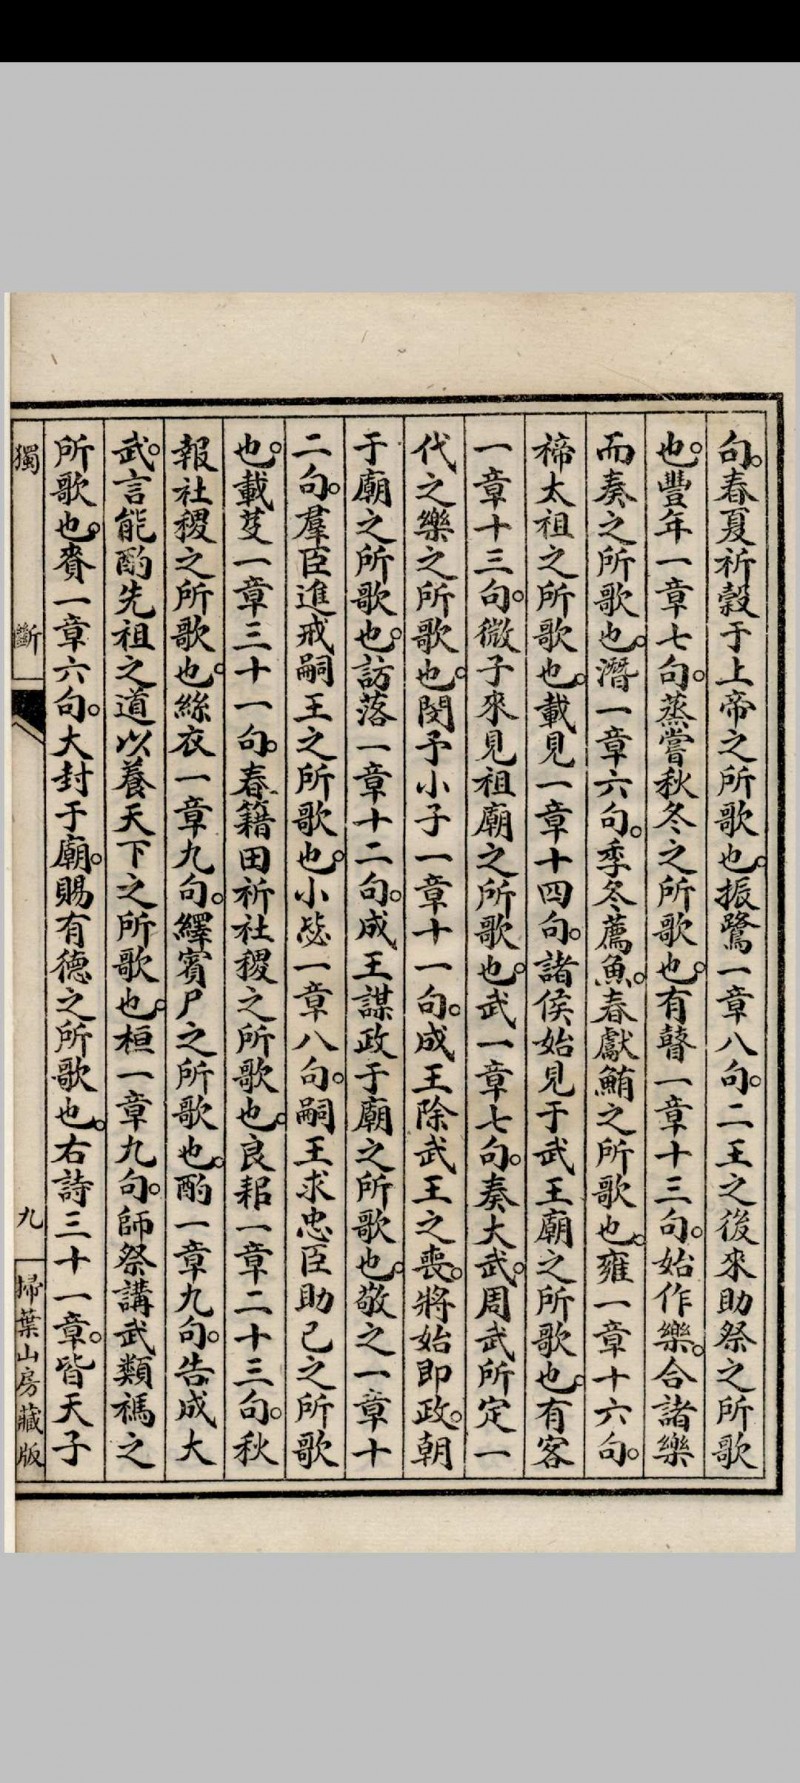 句。春夏祈穀于上帝之所歌也。振鷺一章八句。二王之後來助祭之所歌
也。豐年一章七句。蒸嘗秋冬之所歌也。有瞽一章十三句。始作樂。合諸樂
而奏之所歌也。潛一章六句。季冬薦魚。春獻鮪之所歌也。雍一章十六句。
禘太祖之所歌也。載見一章十四句。諸侯始見于武王廟之所歌也。有客
一章十三句。微子來見祖廟之所歌也。武一章七句。奏大武。周武所定一
代之樂之所歌也。閔予小子一章十一句。成王除武王之喪。將始即政。朝
于廟之所歌也。訪落一章十二句。成王謀政于廟之所歌也。敬之一章十
二句。羣臣進戒嗣王之所歌也。小毖一章八句。嗣王求忠臣助己之所歌
也。載芟一章三十一句。春籍田祈社稷之所歌也。良耜一章二十三句。秋
報社稷之所歌也。絲衣一章九句。繹賓尸之所歌也。酌一章九句。告成大
武。言能酌先祖之道以養天下之所歌也。桓一章九句。師祭講武類禡之
所歌也。賚一章六句。大封于廟。賜有德之所歌也。右詩三十一章。皆天子
獨斷 九 掃葉山房藏版